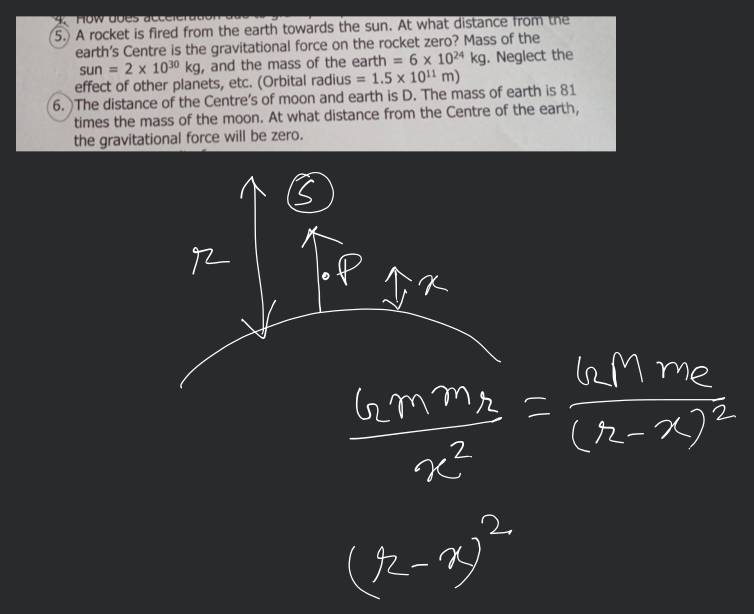 4. How does acceleration due to
5. A rocket is fired from the earth towards the sun. At what distance from the
earth's Centre is the gravitational force on the rocket zero? Mass of the
sun = 2 x 10³⁰ kg, and the mass of the earth = 6 x 10²⁴ kg. Neglect the
effect of other planets, etc. (Orbital radius = 1.5 x 10¹¹ m)
6. The distance of the Centre's of moon and earth is D. The mass of earth is 81
times the mass of the moon. At what distance from the Centre of the earth,
the gravitational force will be zero.
S
r
.P
x
Gmmr/x² = GMme/(r-x)²
(r-x)²